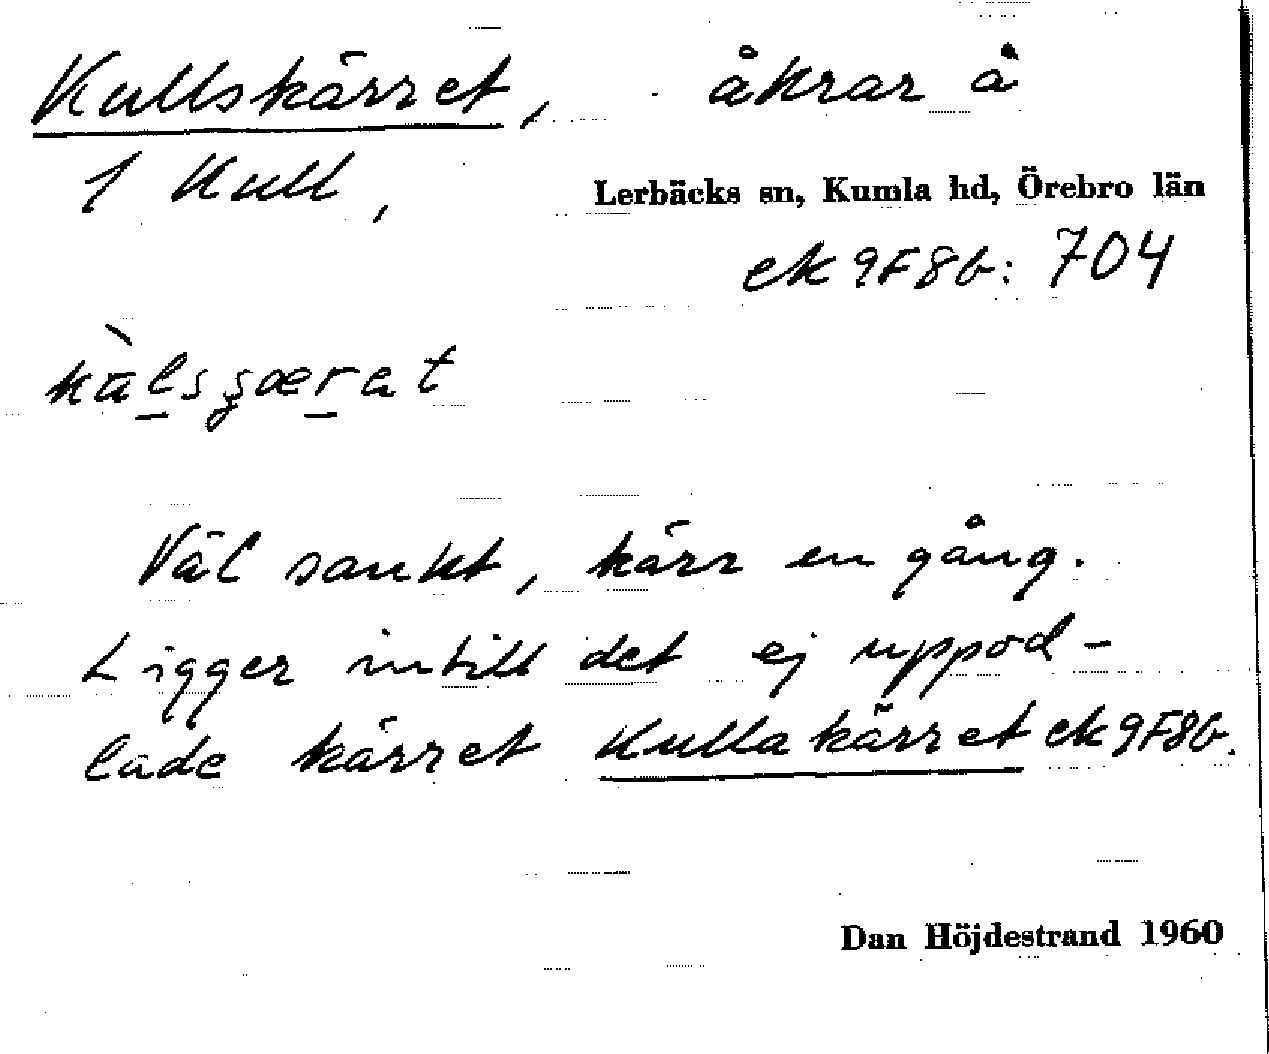 Kullskärret, åkrar å
1 Kull,
Lerbäcks sn, Kumla hd, Örebro län
ek 9F8b: 704
Väl sankt, kärr en gång.
Ligger intill det ej uppod-
lade kärret Kullakärret ek 9F8b.
Dan Höjdestrand 1960